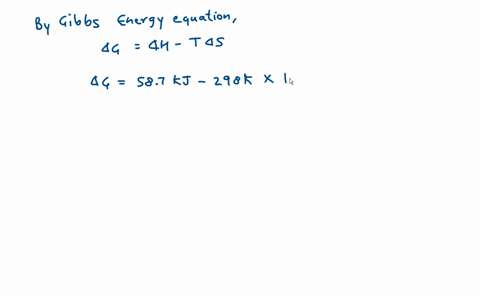 By Gibbs Energy equation,
ΔG = ΔH - TΔS
ΔG = 58.7 KJ - 298K × 1